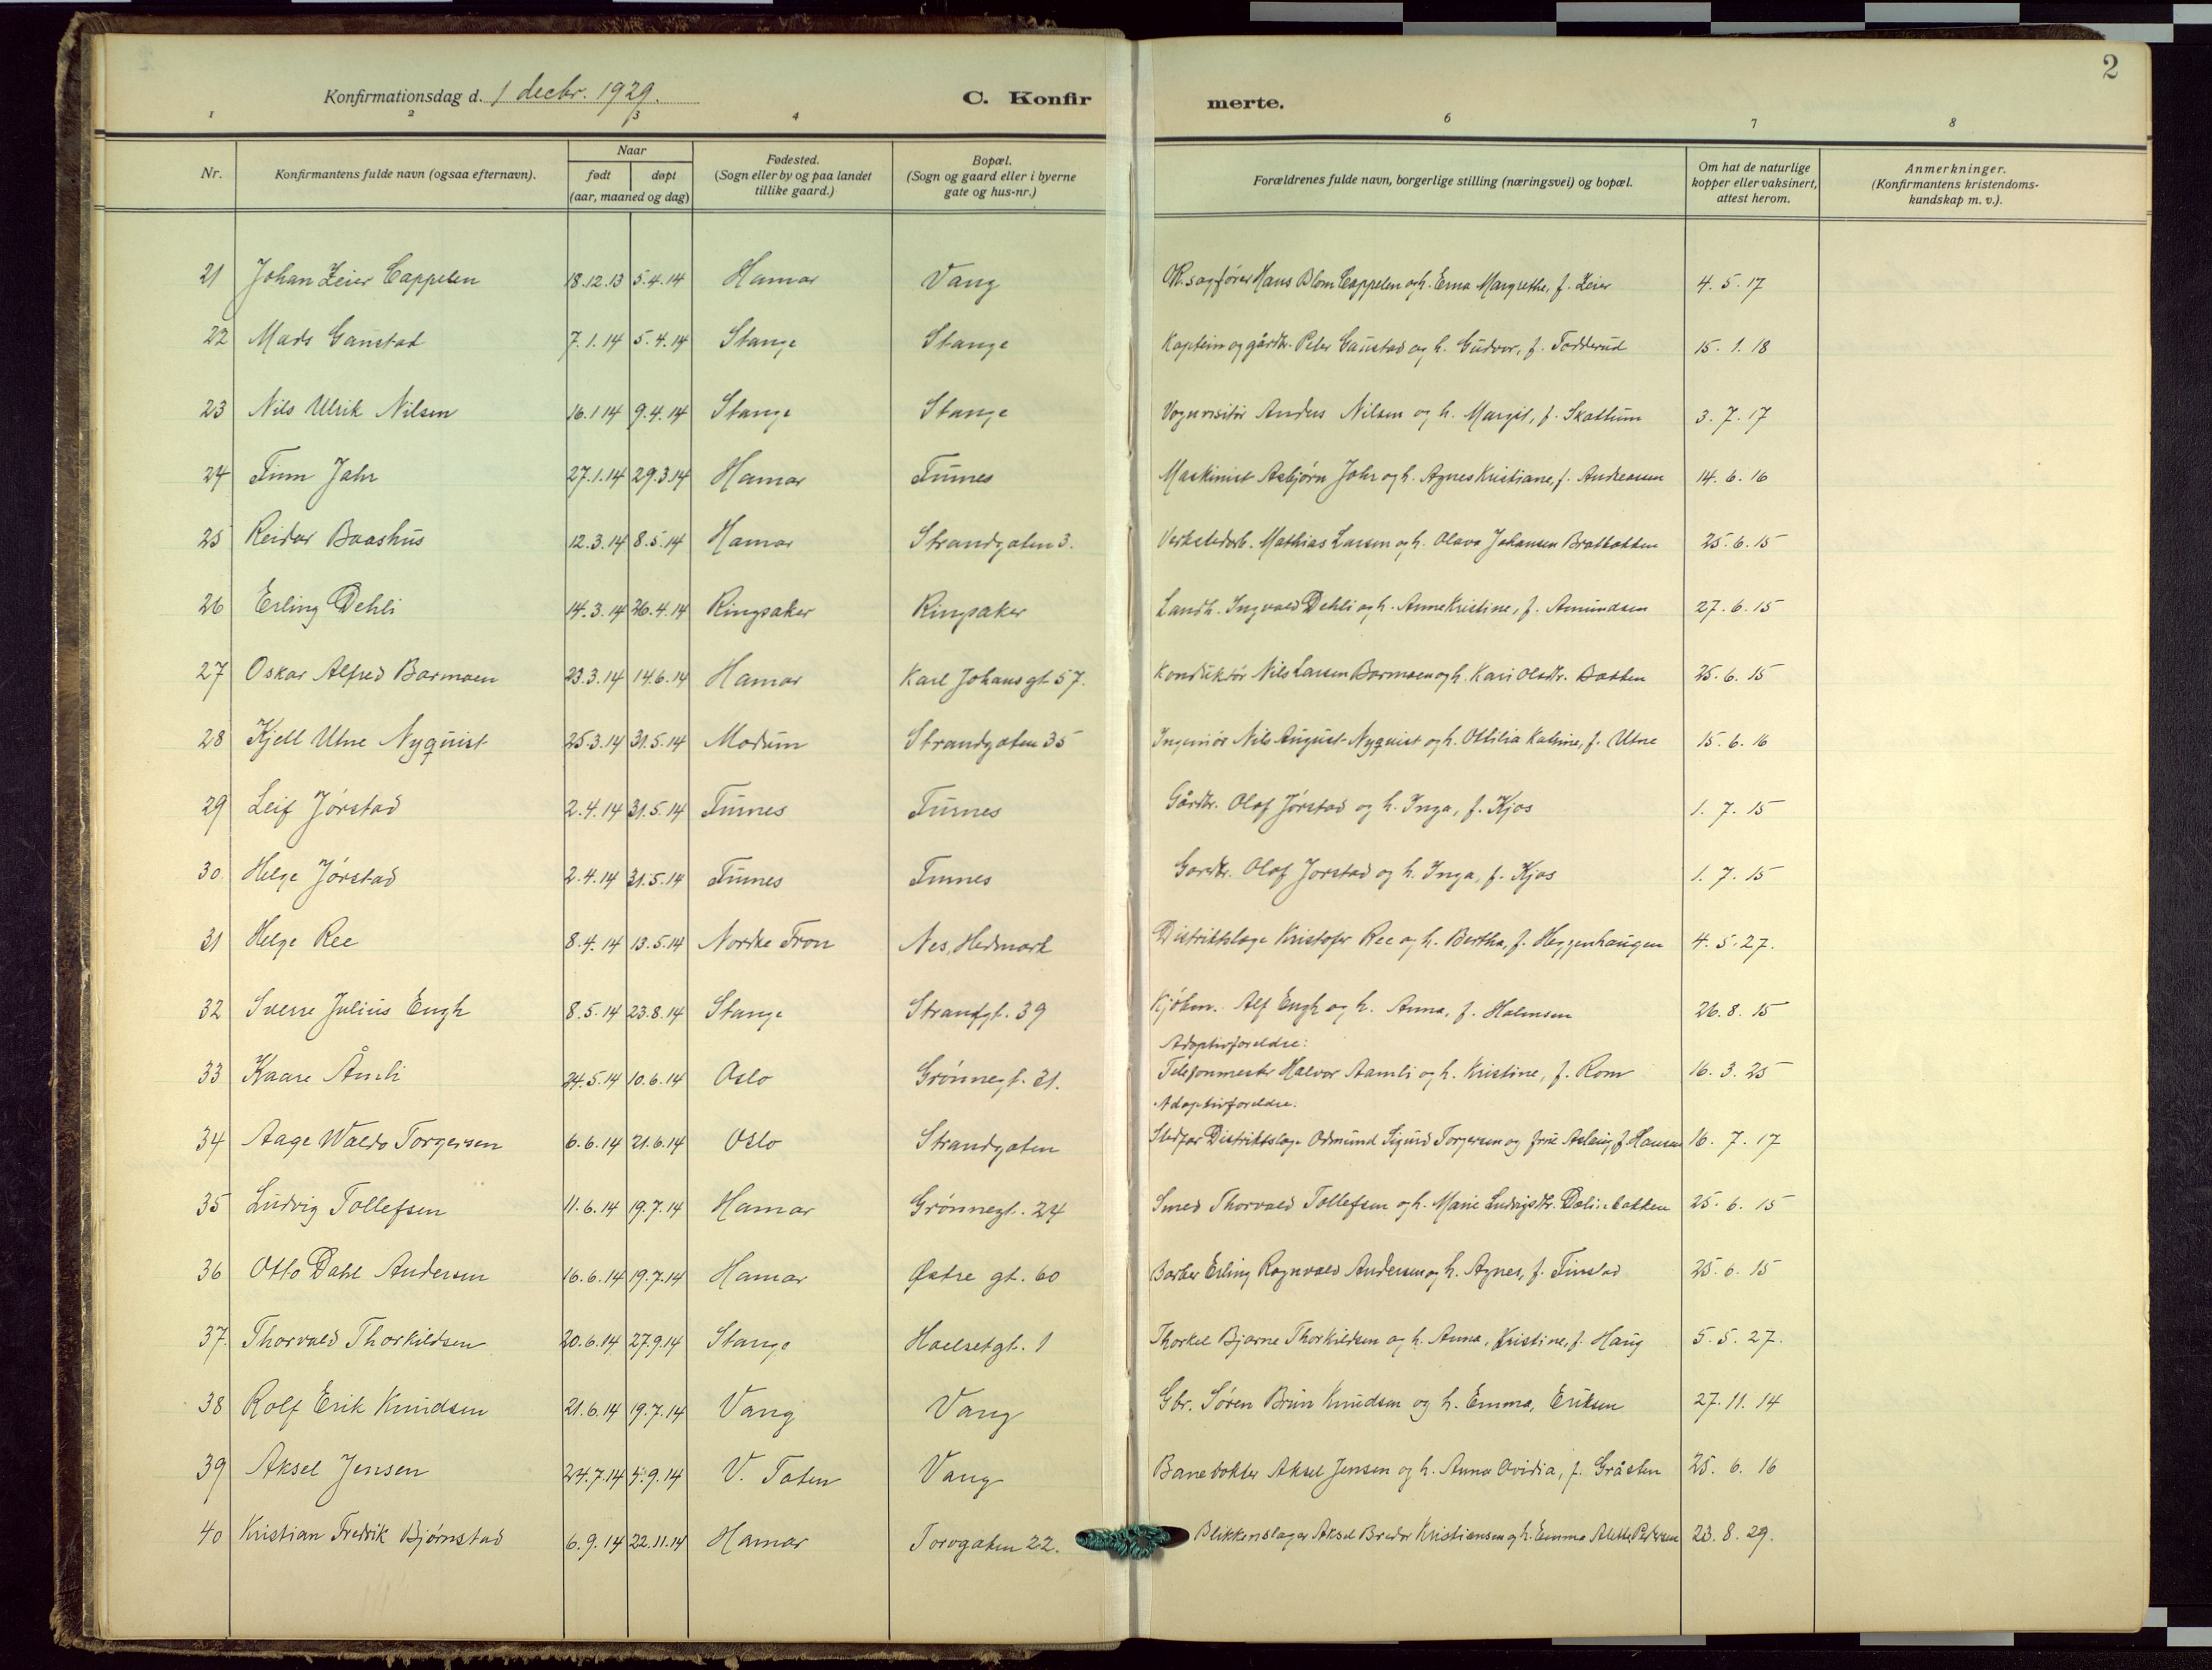 2
Konfirmationsdag d. 1 decbr. 1929.
C. Konfir merte.
1 2 3 4 6 7 8
Nr. Konfirmantens fulde navn (ogsaa efternavn). Naar født døpt (aar, maaned og dag) Fødested. (Sogn eller by og paa landet tillike gaard.) Bopæl. (Sogn og gaard eller i byerne gate og hus-nr.) Forældrenes fulde navn, borgerlige stilling (næringsvei) og bopæl. Om hat de naturlige kopper eller vaksinert, attest herom. Anmerkninger. (Konfirmantens kristendoms-kundskap m. v.).
21 Johan Zeier Cappelen 18.12.13 5.4.14 Hamar Vang O.R.sagfører Hans Blom Cappelen og h. Erna Margrethe, f. Zeier 4.5.17
22 Mads Gaustad 7.1.14 5.4.14 Stange Stange Kaptein og gårdbr. Peter Gaustad og h. Gudvor, f. Fodderud 15.1.18
23 Nils Ulrik Nilsen 16.1.14 9.4.14 Stange Stange Vognvisitør Anders Nilsen og h. Margit, f. Skattum 3.7.17
24 Finn Jahr 27.1.14 29.3.14 Hamar Furnes Maskinist Asbjørn Jahr og h. Agnes Kristiane, f. Andreassen 14.6.16
25 Reidar Baashus 12.3.14 8.5.14 Hamar Strandgaten 3. Verkstedarb. Mathias Larsen og h. Olava Johansen Bratbakken 25.6.15
26 Erling Dehli 14.3.14 26.4.14 Ringsaker Ringsaker Landh. Ingvald Dehli og h. Anne Kristine, f. Amundsen 27.6.15
27 Oskar Alfred Barmoen 23.3.14 14.6.14 Hamar Karl Johans gt. 57. Konduktør Nils Larsen Barmoen og h. Kari Olsdtr. Bakken 25.6.15
28 Kjell Utne Nyquist 25.3.14 31.5.14 Modum Strandgaten 35 Ingeniør Nils August Nyquist og h. Ottilia Katrine, f. Utne 15.6.16
29 Leif Jørstad 2.4.14 31.5.14 Furnes Furnes Gårdbr. Olaf Jørstad og h. Inga, f. Kjos 1.7.15
30 Helge Jørstad 2.4.14 31.5.14 Furnes Furnes Gardbr. Olaf Jorstad og h. Inga, f. Kjos 1.7.15
31 Helge Ree 8.4.14 13.5.14 Nordre Fron Nes, Hedmark Distriktslæge Kristofer Ree og h. Bertha, f. Heggenhaugen 4.5.27.
32 Sverre Julius Engh 8.5.14 23.8.14 Stange Strandgt. 39 Kjøbm. Alf Engh og h. Anna, f. Holmsen 26.8.15
Adoptivforeldre:
33 Kaare Åmli 24.5.14 10.6.14 Oslo Grønnegt. 31. Telefonmester Halvor Aamli og h. Kristine, f. Rom 16.3.25
Adoptivforeldre:
34 Aage Waldo Torgersen 6.6.14 21.6.14 Oslo Strandgaten Stedfar Distriktslæge Odmund Sigurd Torgersen og frue Aslaug, f. Hansen 16.7.17
35 Ludvig Tollefsen 11.6.14 19.7.14 Hamar Grønnegt. 24 Smed Thorvald Tollefsen og h. Marie Ludvigsdtr. 25.6.15
36 Otto Dahl Andersen 16.6.14 19.7.14 Hamar Østre gt. 60 Barber Erling Ragnvald Andersen og h. Agnes, f. Finstad 25.6.15
37. Thorvald Thorkildsen 20.6.14 27.9.14 Stange Holsetgt. 1 Thorkel Bjarne Thorkildsen og h. Anna, Kristine, f. Haug 5.5.27.
38 Rolf Erik Knudsen 21.6.14 19.7.14 Vang Vang Gbr. Søren Brun Knudsen og h. Emma, Eriksen 27.11.14
39 Aksel Jensen 24.7.14 4.9.14 V. Toten Vang Banevokter Aksel Jensen og h. Anna Ovidia, f. Gråsten 25.6.16
40 Kristian Fredrik Bjørnstad 6.9.14 22.11.14 Hamar Torvgaten 22. Blikkenslager Aksel Kristiansen og h. Emma Alette Pedersen 23.8.29.